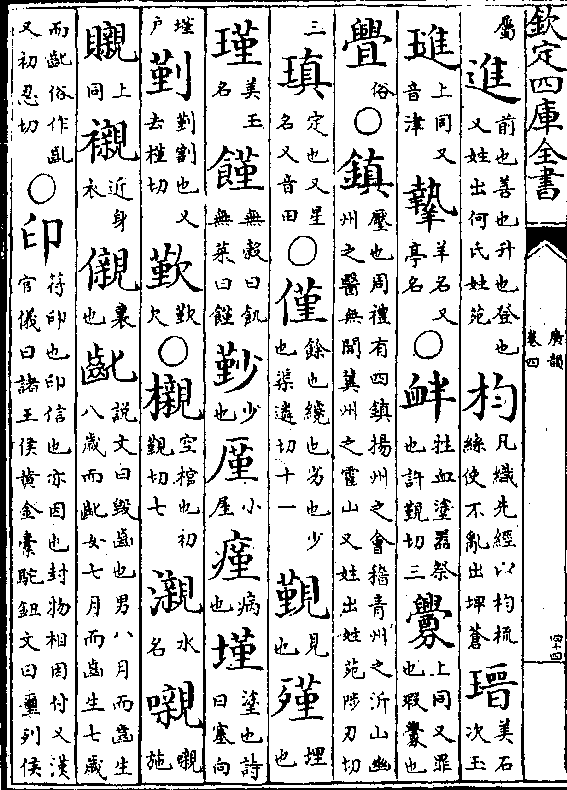 欽定四庫全書
廣韻
卷四
四十四
屬進前也善也升也登也又姓出何氏姓苑㭃凡織先經以㭃梳絲使不亂出埤蒼瑨美石次玉
璡上同又音津𦎷羊名又亭名○衅牲血塗器祭也許覲切三釁上同又罪也瑕釁也
舋俗○鎮壓也周禮有四鎮揚州之會稽青州之沂山幽州之醫無閭冀州之霍山又姓出姓苑陟刃切
三瑱定也又星名又音田○僅餘也纔也劣也少也渠遴切十一覲見也殣埋也
瑾美玉名饉無穀曰飢無菜曰饉㔤少也廑小屋㾙病也墐塗也詩曰塞向
墐户㓸㓸割也又去槿切歏歏欠○櫬空棺也初覲切七瀙水名嚫嚫施
㒨上同襯近身衣儭裏也齔說文曰毀齒也男八月而齒生八歲而齔女七月而齒生七歲
而齔俗作齓又初忍切○印符印也印信也亦因也封物相因付又漢官儀曰諸王侯黄金橐駝鈕文曰璽列侯